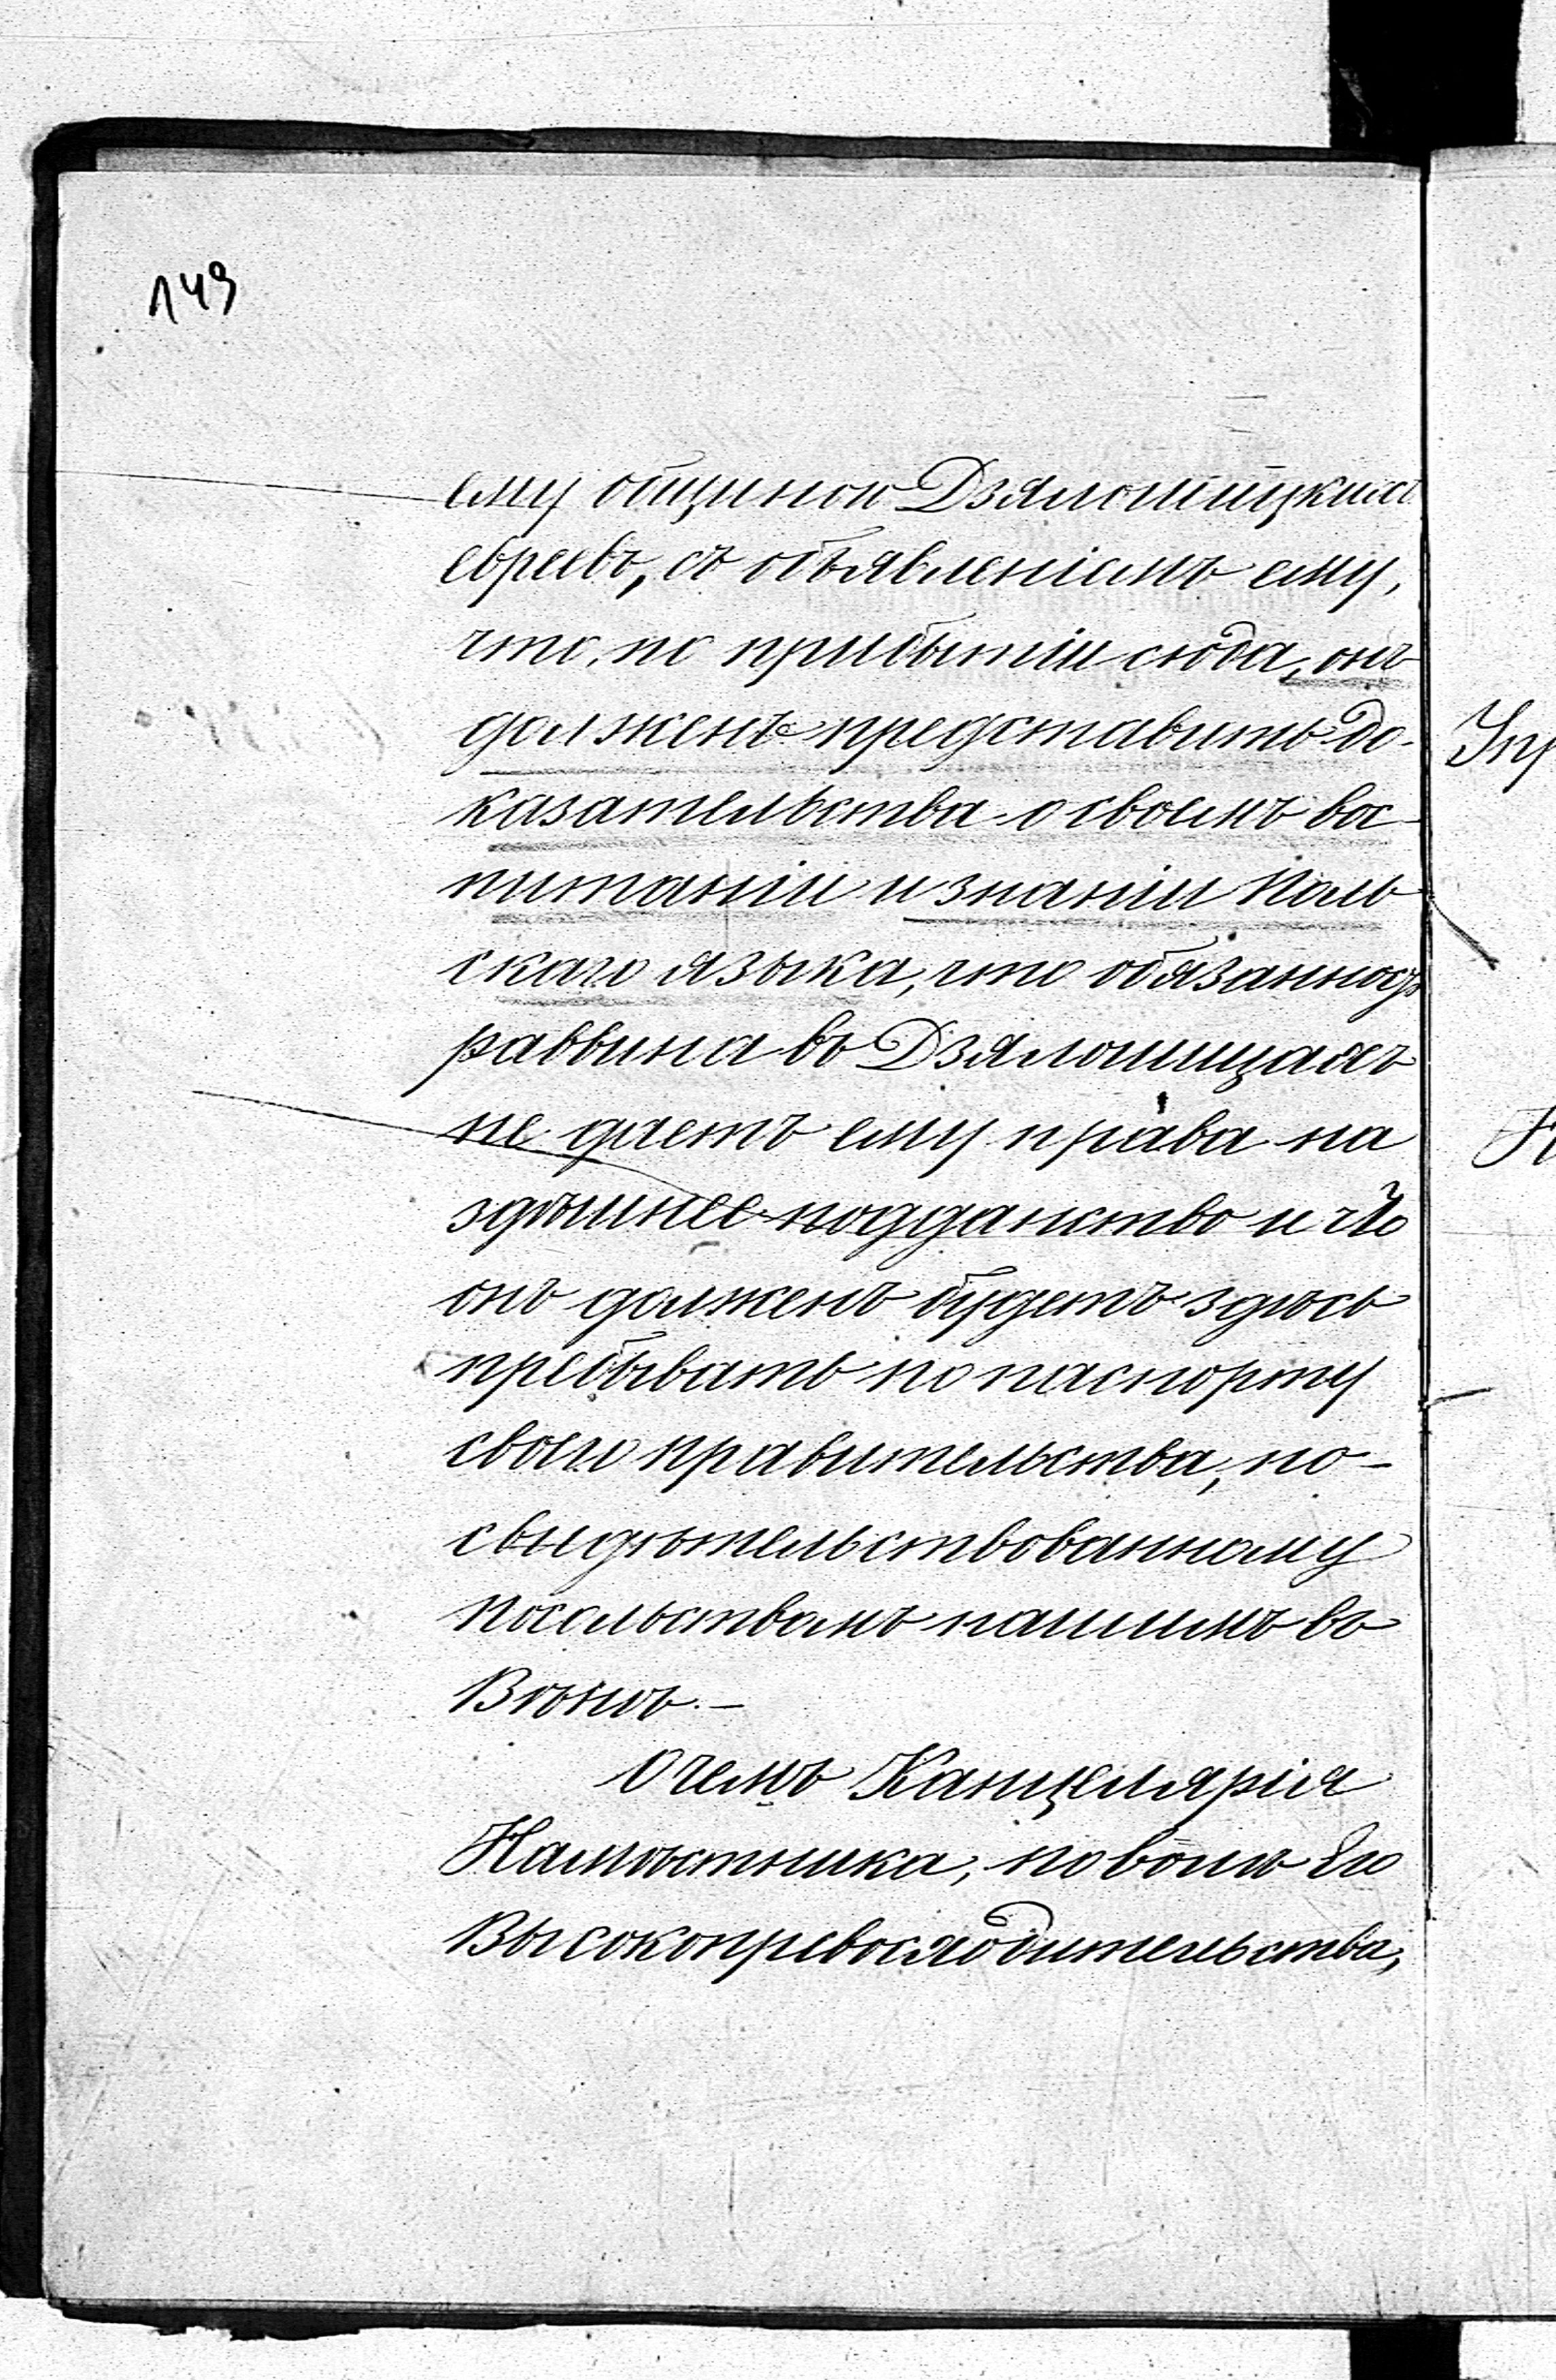 149
ему общиною Дзялошицкихъ
евреевъ, съ объявленіемъ ему,
что, по прибытіи сюда, онъ
долженъ представить до-
казательства о своемъ вос
питаніи и знаніи Поль
скаго языка, что обязанность
раввина въ Дзялошицахъ
не даетъ ему права на
здѣшнее подданство и что
онъ долженъ будетъ здѣсь
пребывать по паспорту
своего правительства, по-
свидѣтельствованному
посольствомъ нашимъ въ
Вѣнѣ.—
О чемъ Канцелярія
Намѣстника, по волѣ Его
Высокопревосходительства,